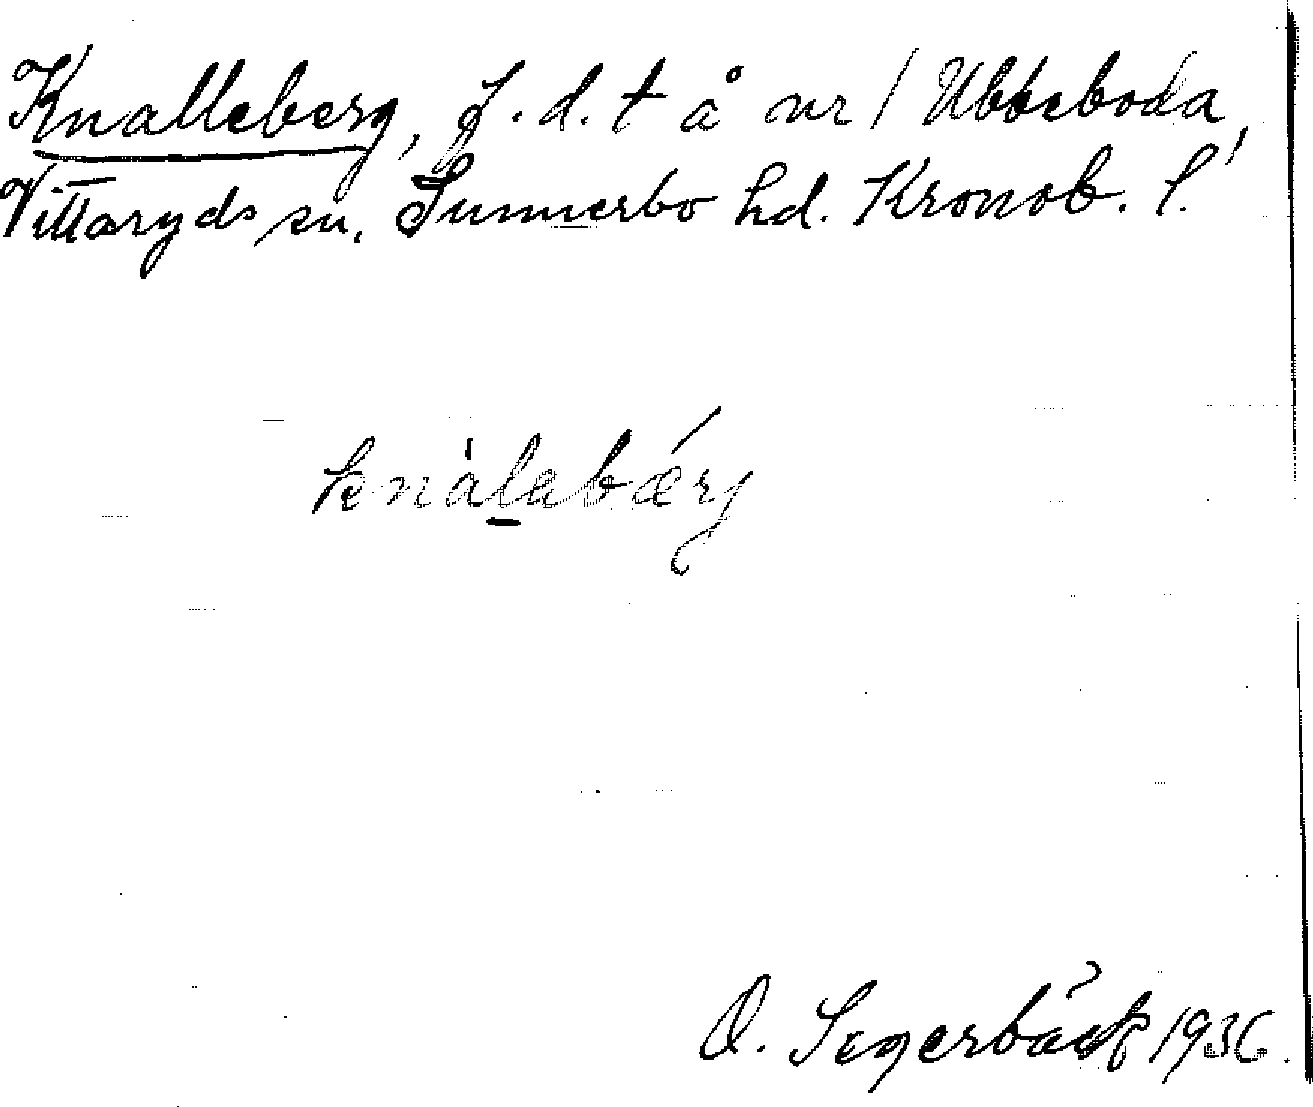 Knalleberg, f.d. t å nr 1 Ubbeboda,
Vittaryds sn. Sunnerbo hd. Kronob. l.
knàlabǽrj
O. Segerbäck 1936.